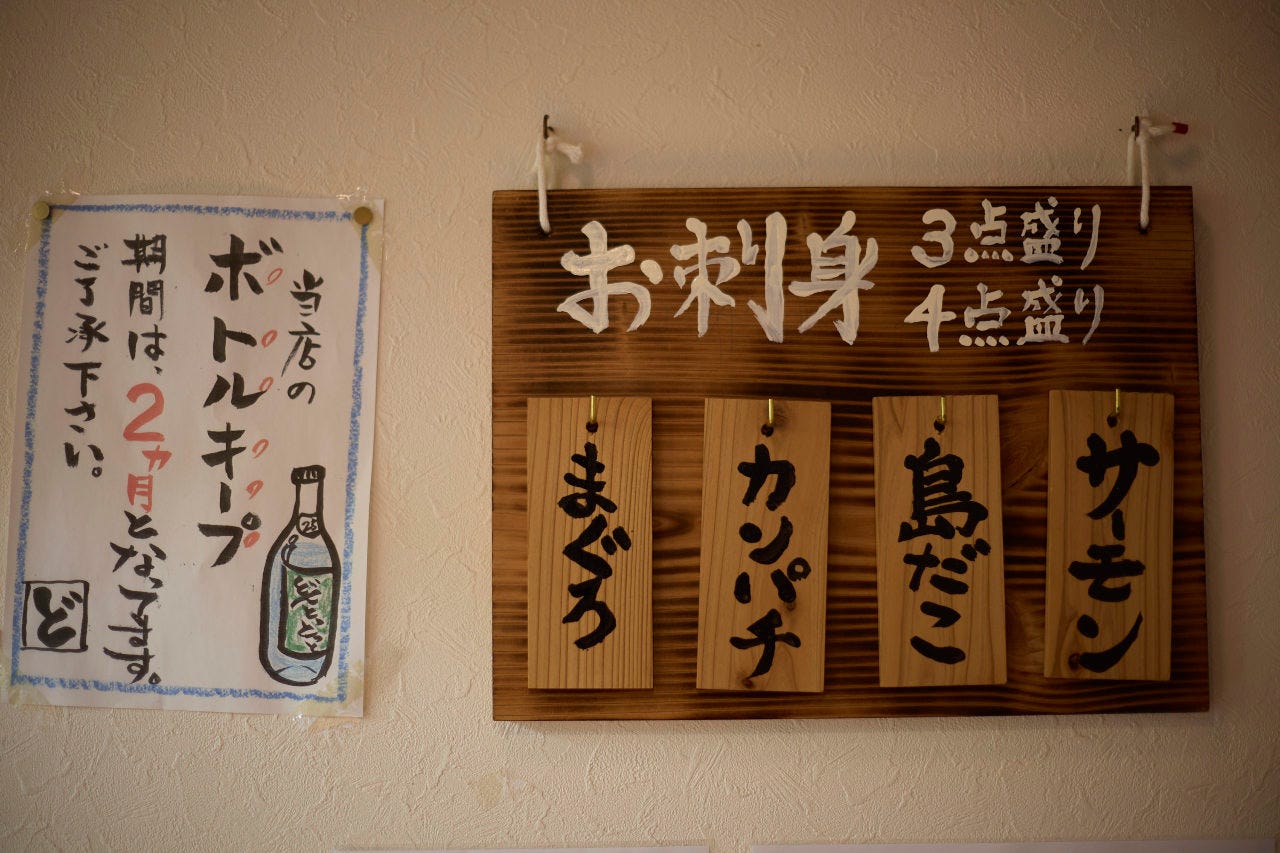 お刺身
3点盛り
4点盛り
まぐろ
カンパチ
島だこ
サーモン
当店の
ボトルキープ
期間は、2ヵ月となってます。
ご了承下さい。
ど
25